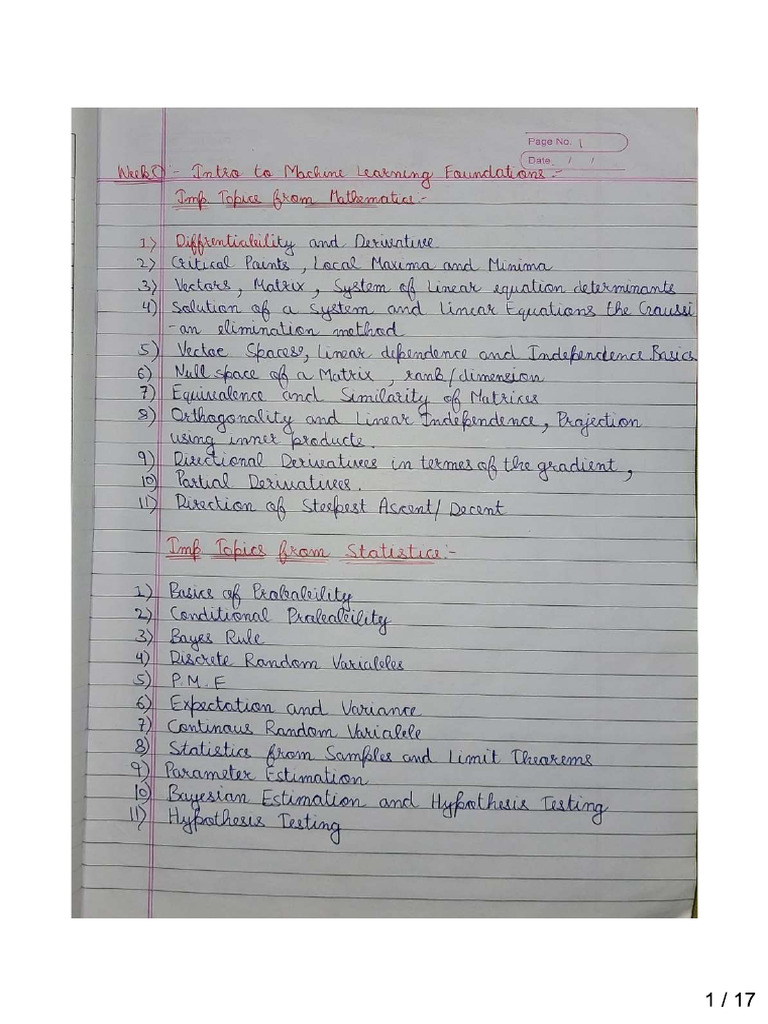 Page No. 1
Date / /
Week 0 :- Intro to Machine Learning Foundations :-
Imp Topics from Mathematics :-
1) Diffrentiability and Derivative
2) Critical Points, Local Maxima and Minima
3) Vectors, Matrix, System of Linear equation determinants
4) Solution of a System and Linear Equations the Gaussi
-an elimination method
5) Vector Spaces, Linear dependence and Independence Basics
6) Null space of a Matrix, rank/dimension
7) Equivalence and Similarity of Matrixes
8) Orthogonality and Linear Independence, Projection
using inner products.
9) Directional Derivatives in termes of the gradient,
10) Partial Derivatives.
11) Direction of Steepest Ascent/ Decent
Imp Topics from Statistics :-
1) Basics of Probability
2) Conditional Probability
3) Bayes Rule
4) Discrete Random Variables
5) P.M.F
6) Expectation and Variance
7) Continous Random Variable
8) Statistics from Samples and Limit Theorems
9) Parameter Estimation
10) Bayesian Estimation and Hypothesis Testing
11) Hypothesis Testing
1 / 17